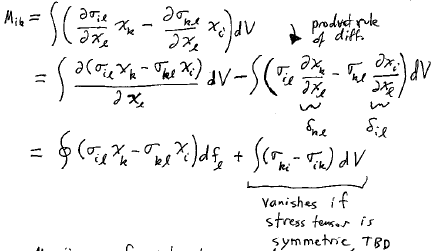 M_{ik} = ∫(∂σ_{il}/∂x_l x_k − ∂σ_{kl}/∂x_l x_i)dV
product rule
of diff.
= ∫ ∂(σ_{il} x_k − σ_{kl} x_i)/∂x_l dV − ∫(σ_{il} ∂x_k/∂x_l − σ_{kl} ∂x_i/∂x_l)dV
δ_{kl} δ_{il}
= ∮ (σ_{il} x_k − σ_{kl} x_i)df_l + ∫(σ_{ki} − σ_{ik}) dV
vanishes if
stress tensor is
symmetric TBD